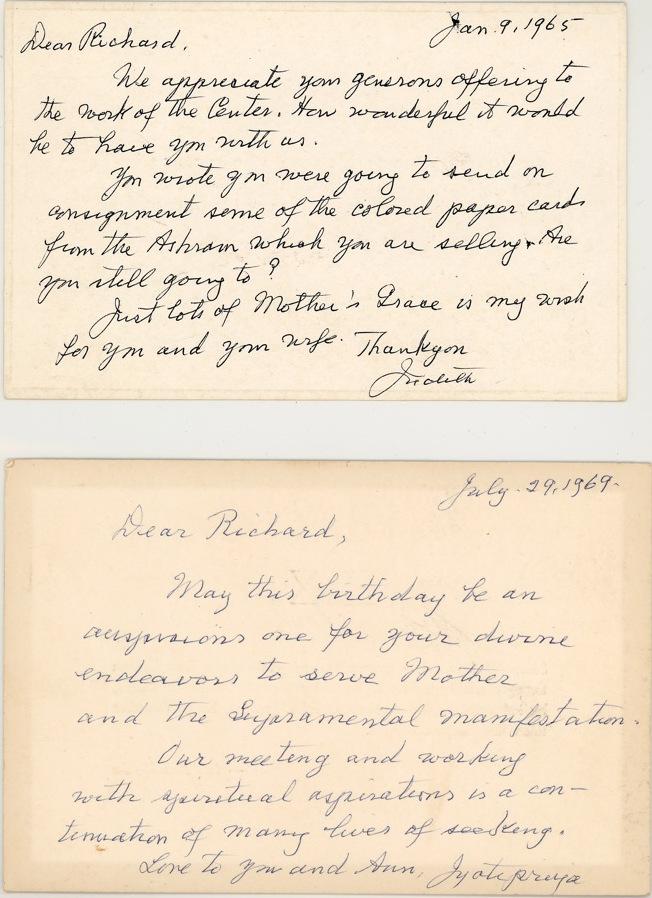 Jan. 9, 1965
Dear Richard,
We appreciate your generous offering to
the work of the Center. How wonderful it would
be to have you with us.
You wrote you were going to send on
consignment some of the colored paper cards
from the Ashram which you are selling. Are
you still going to?
Just lots of Mother's Grace is my wish
for you and your wife. Thank you
Judith
July. 29, 1969.
Dear Richard,
May this birthday be an
auspicious one for your divine
endeavors to serve Mother
and the Supramental manifestation.
Our meeting and working
with spiritual aspirations is a con-
tinuation of many lives of seeking.
Love to you and Ann, Jyotipriya